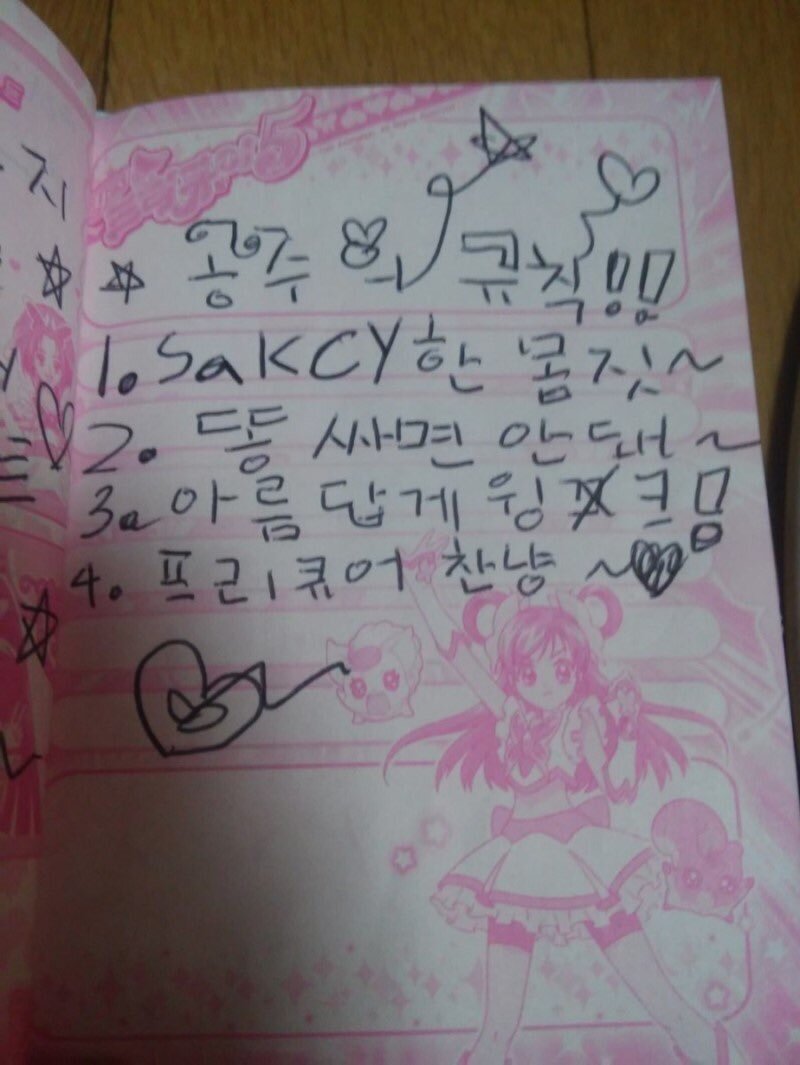 프리큐어5
공주의 규칙!!
1. SaKCY한 몸짓~
2. 똥 싸면 안 돼~
3. 아름답게 윙크!
4. 프리큐어 찬양~
지